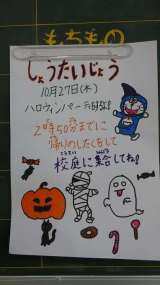 もちもの
しょうたいじょう
10月27日(木)
ハロウィンパーティ
2時50分までに
帰りのしたくをして
校庭に集合してね!